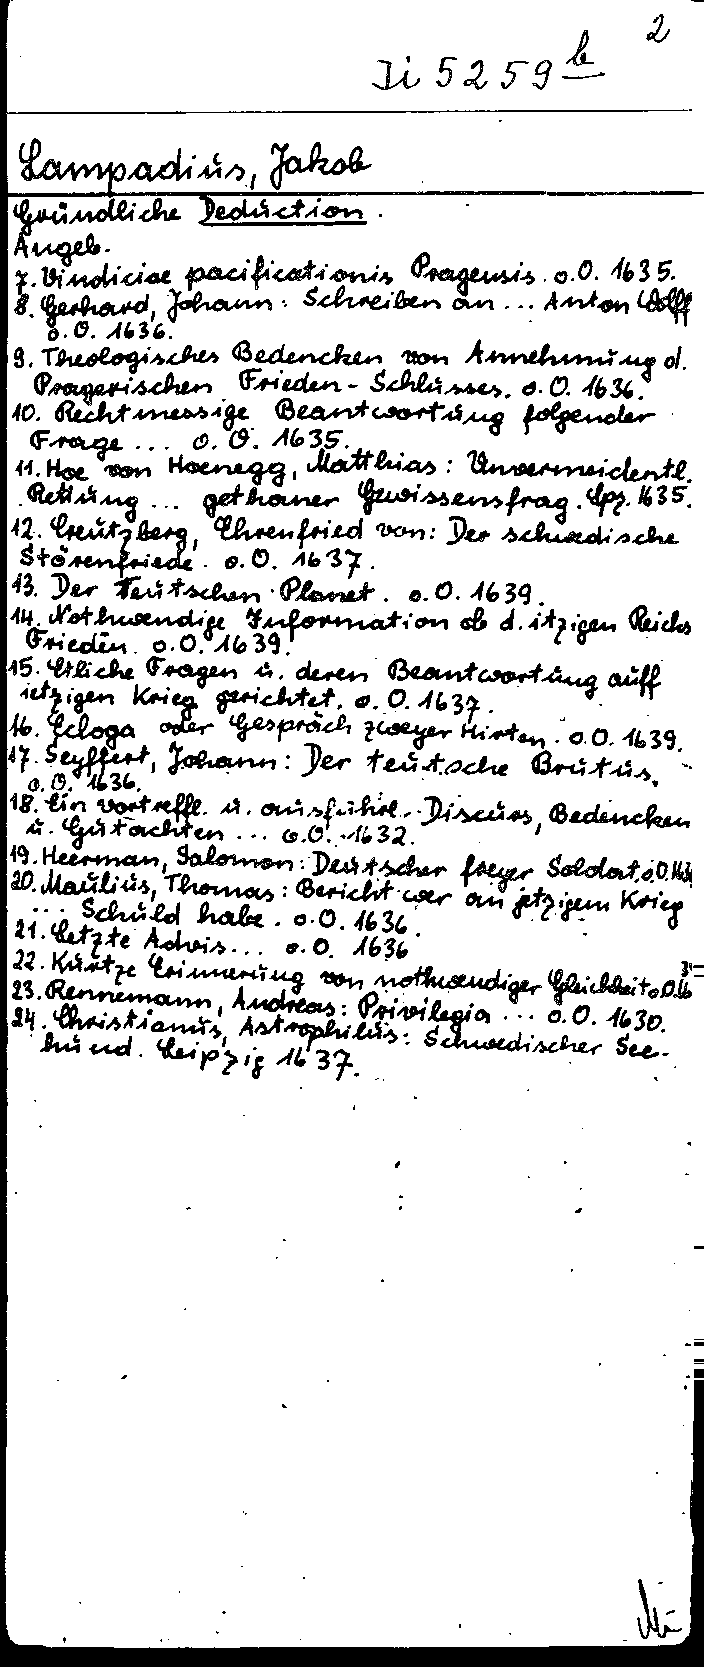 2
Ji 5259 b
Lampadius, Jakob
Gründliche Deduction.
Angeb.
7. Vindiciae pacificationis Pragensis. o.O. 1635.
8. Gerhard, Johann: Schreiben an... Anton Wolff
o.O. 1636.
9. Theologisches Bedencken von Annehmung d.
Pragerischen Frieden-Schlusses. o.O. 1636.
10. Rechtmessige Beantwortung folgender
Frage... o.O. 1635.
11. Hoe von Hoenegg, Matthias: Unvermeidentl.
Rettung... gethaner Gewissensfrag. Lpz. 1635.
12. Creutzberg, Ehrenfried von: Der schwedische
Störenfriede. o.O. 1637.
13. Der Teutschen Planet. o.O. 1639.
14. Nothwendige Information ob d. itzigen Reichs
Frieden. o.O. 1639.
15. Etliche Fragen u. deren Beantwortung auff
ietzigen Krieg gerichtet. o.O. 1637.
16. Ecloga oder Gespräch zweyer Hirten. o.O. 1639.
17. Seyffert, Johann: Der teutsche Brutus.
o.O. 1636.
18. Ein vortreffl. u. ausführl. Discurs, Bedencken
u. Gutachten... o.O. 1632.
19. Heerman, Salomon: Deutscher freyer Soldat. o.O.
20. Maulius, Thomas: Bericht wer an jetzigem Krieg
... Schuld habe. o.O. 1636.
21. Letzte Advis... o.O. 1636
22. Kurtze Erinnerung von nothwendiger Gleichheit o.O.
23. Rennemann, Andreas: Privilegia... o.O. 1630.
24. Christianus, Astrophilus: Schwedischer See-
hund. Leipzig 1637.